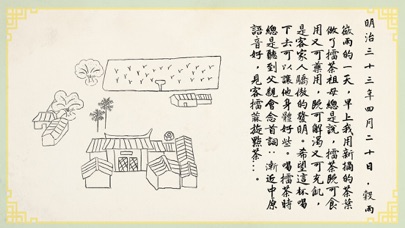 明治三十三年四月二十日，穀雨
微雨的一天，早上我用新摘的茶葉
做了擂茶祖母總是說，擂茶既可食
用又可藥用，既可解渴又可充飢，
是客家人驕傲的發明。希望這杯喝
下去可以讓他身體好些。喝擂茶時
總是聽到父親會念首詞：漸近中原
語音好，見客擂蔴旋點茶…。